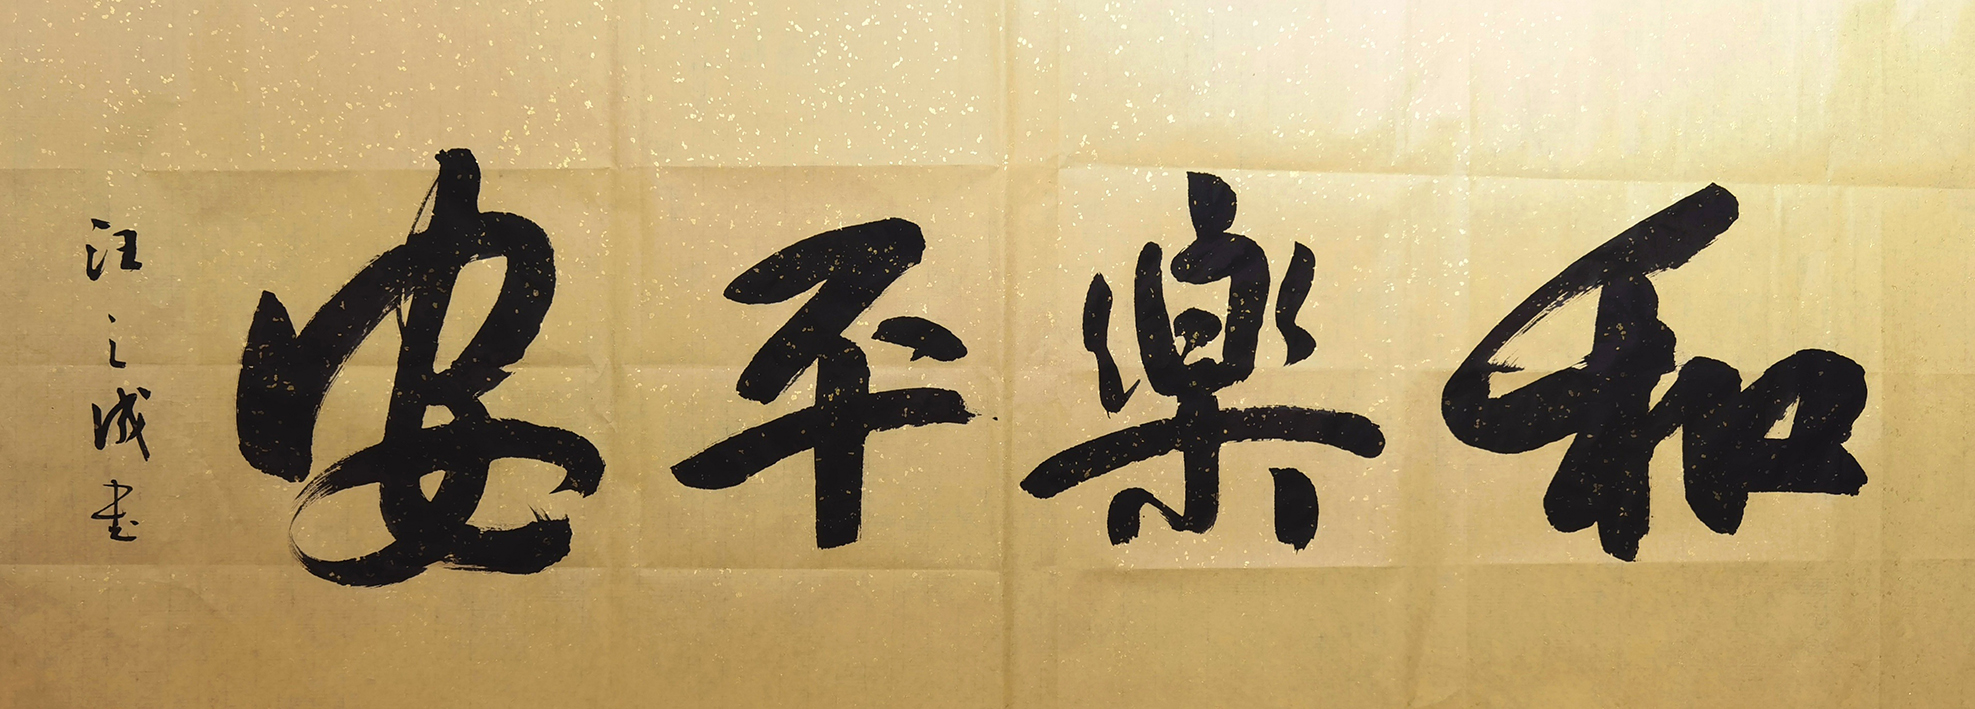 和樂平安
汪之成书